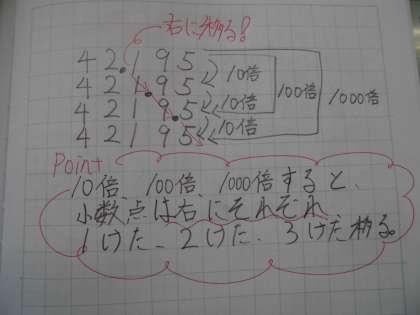 右に移る!
42.195
421.95
4219.5
42195
10倍
10倍
10倍
100倍
1000倍
Point
10倍、100倍、1000倍すると、
小数点は右にそれぞれ
1けた、2けた、3けた移る。